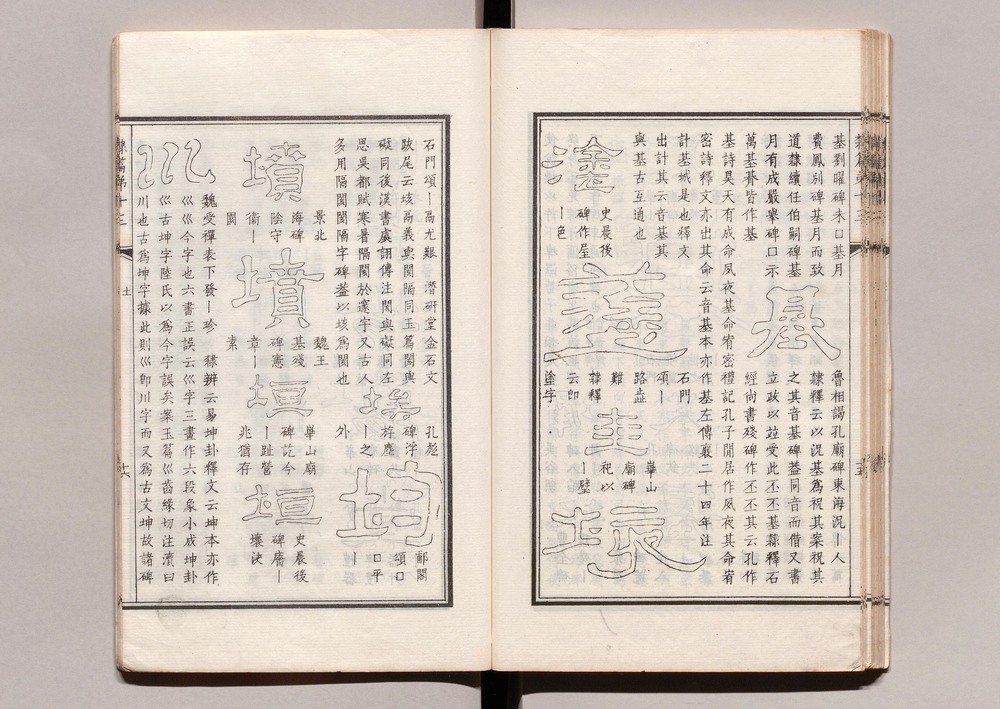 基劉曜碑未口基月
費鳳別碑基月而致
道隸續任伯嗣碑基
月有成嚴舉碑口示
萬基朞皆作基
基
魯相謁孔廟碑東海況丨人
隸釋云以況基爲祝其案祝其
之其音基碑蓋同音而借又書
立政以竝受此丕丕基隸釋石
經尚書殘碑作不不其云孔作
基詩昊天有成命夙夜基命宥密禮記孔子閒居作夙夜其命宥
密詩釋文亦出其命云音基本亦作基左傳襄二十四年注
計基城是也釋文
出計其云音基其
與基古互通也
塗
史晨後
碑作屋
丨色
塗
石門
頌丨
路澁
難
隸釋
云卽
塗字
圭
華山
廟碑
祀以
丨璧
垓
石門頌丨鬲尢艱 潛研堂金石文
跋尾云垓鬲義與閡隔同玉篇閡與
礙同後漢書虞詡傳注閡與礙同左
思吳都賦寒暑隔閡於邃宇又古人
多用隔閡閡隔字碑蓋以垓爲閡也
埃
孔彪
碑浮
斿塵
丨之
外
均
郙閣
頌口
口平
丨
墳
景北
海碑
陰守
衞丨
園
墳
魏王
基殘
碑憲
章丨
素
垣
華山廟
碑訖今
丨趾營
兆猶存
垣
史晨後
碑廧丨
壞決
巛
魏受禪表下發丨珍 隸辨云易坤卦釋文云坤本亦作
巛巛今字也六書正誤云巛字三畫作六段象小成坤卦
巛古坤字陸氏以爲今字誤矣案玉篇巛齒緣切注瀆曰
川也古爲坤字據此則巛卽川字而又爲古文坤故諸碑
隸篇第十三
土
十六